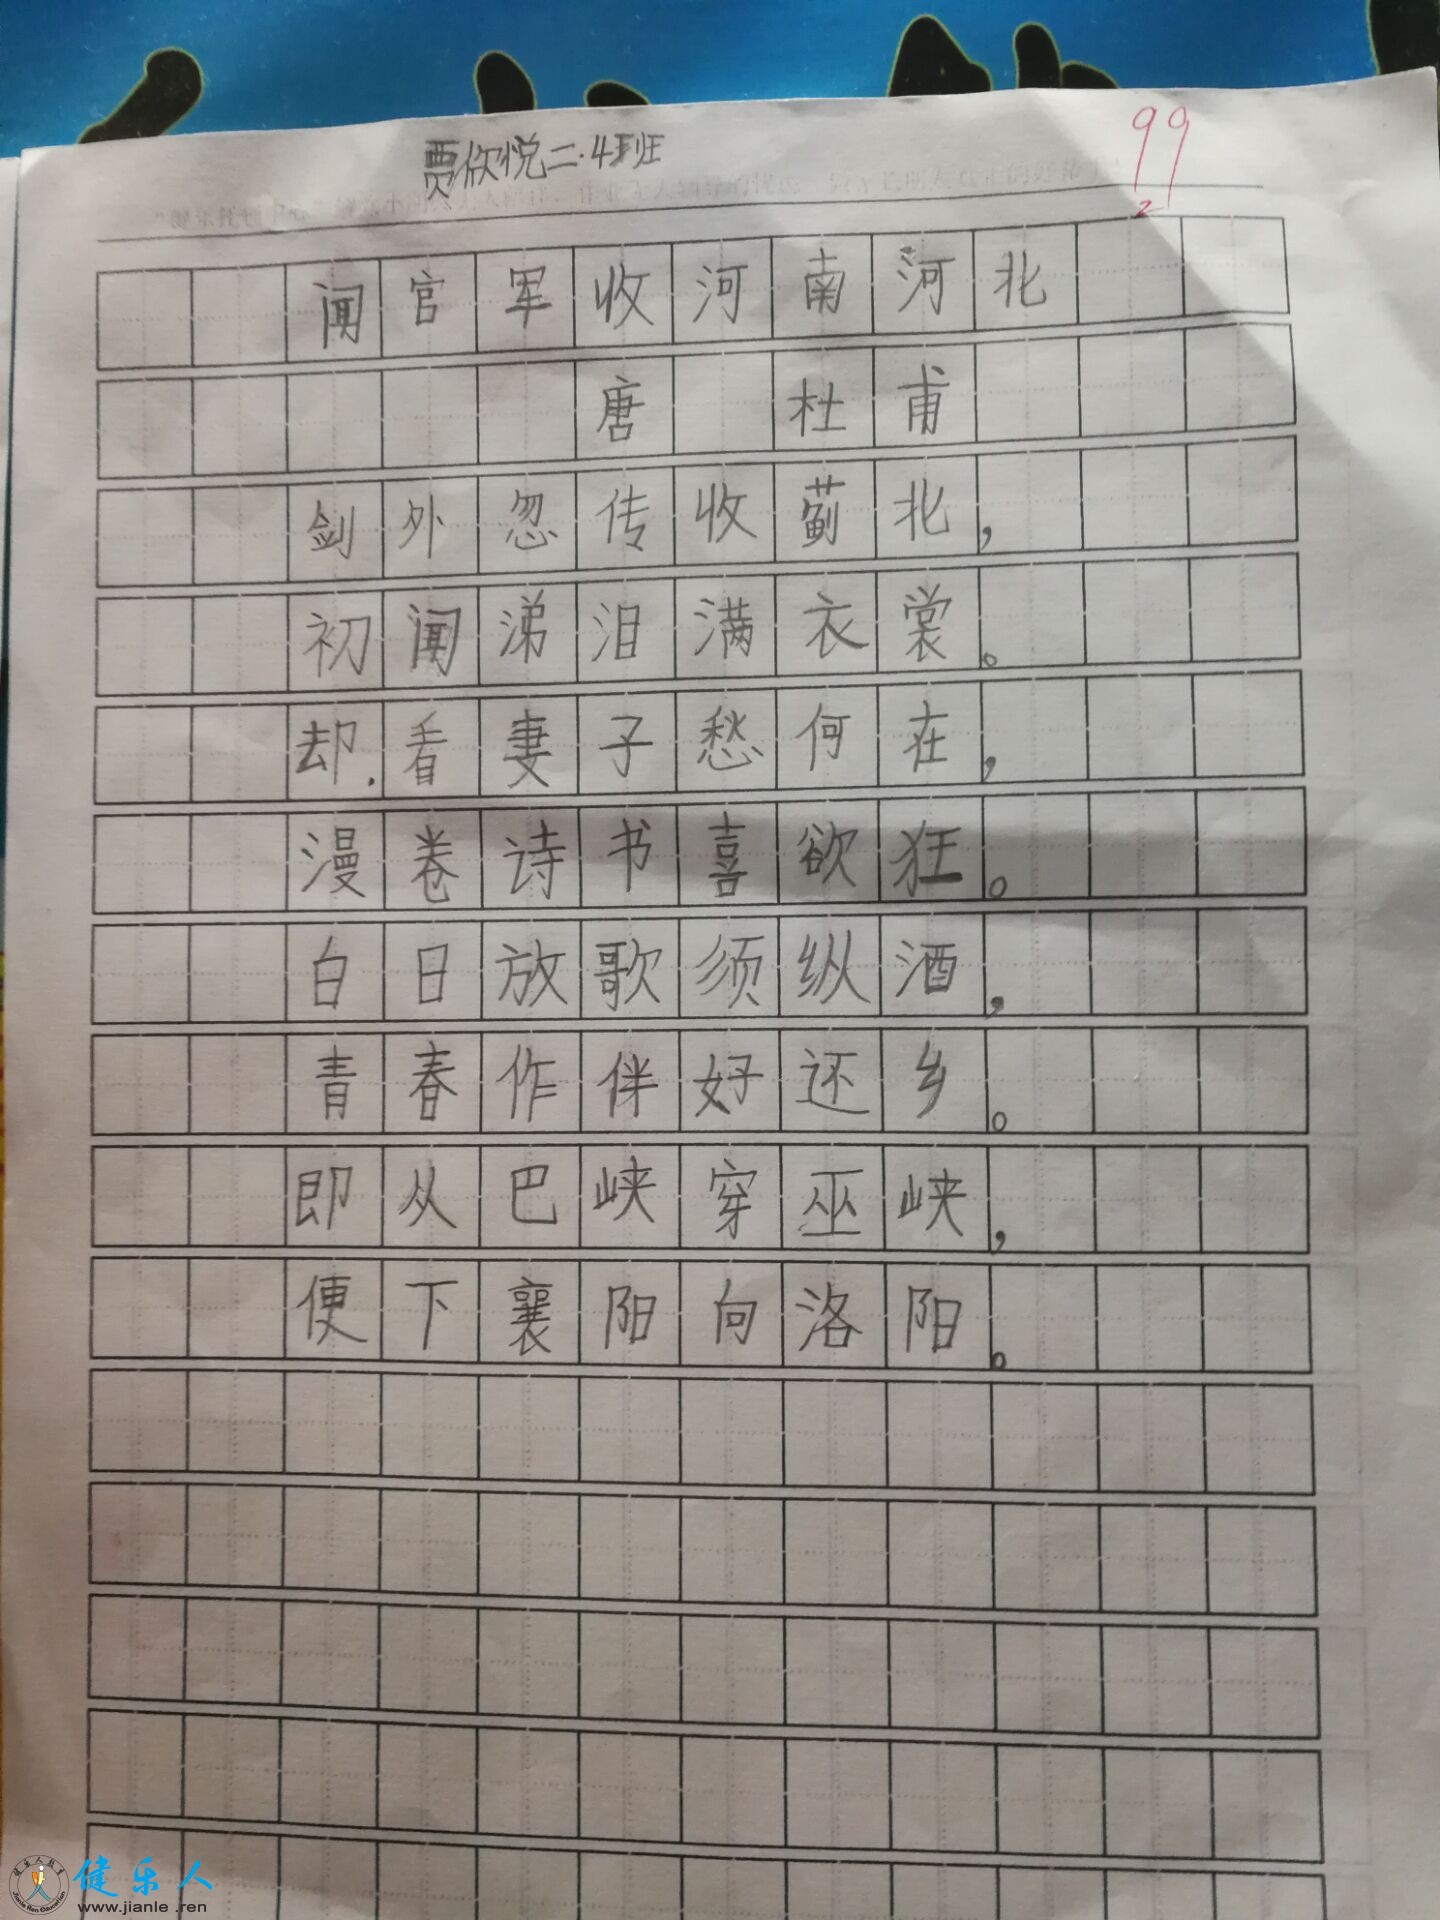 贾欣悦二·4班
99
2
闻官军收河南河北
唐 杜甫
剑外忽传收蓟北，
初闻涕泪满衣裳。
却.看妻子愁何在，
漫卷诗书喜欲狂。
白日放歌须纵酒，
青春作伴好还乡。
即从巴峡穿巫峡，
便下襄阳向洛阳。
健乐人
www.jianle.ren